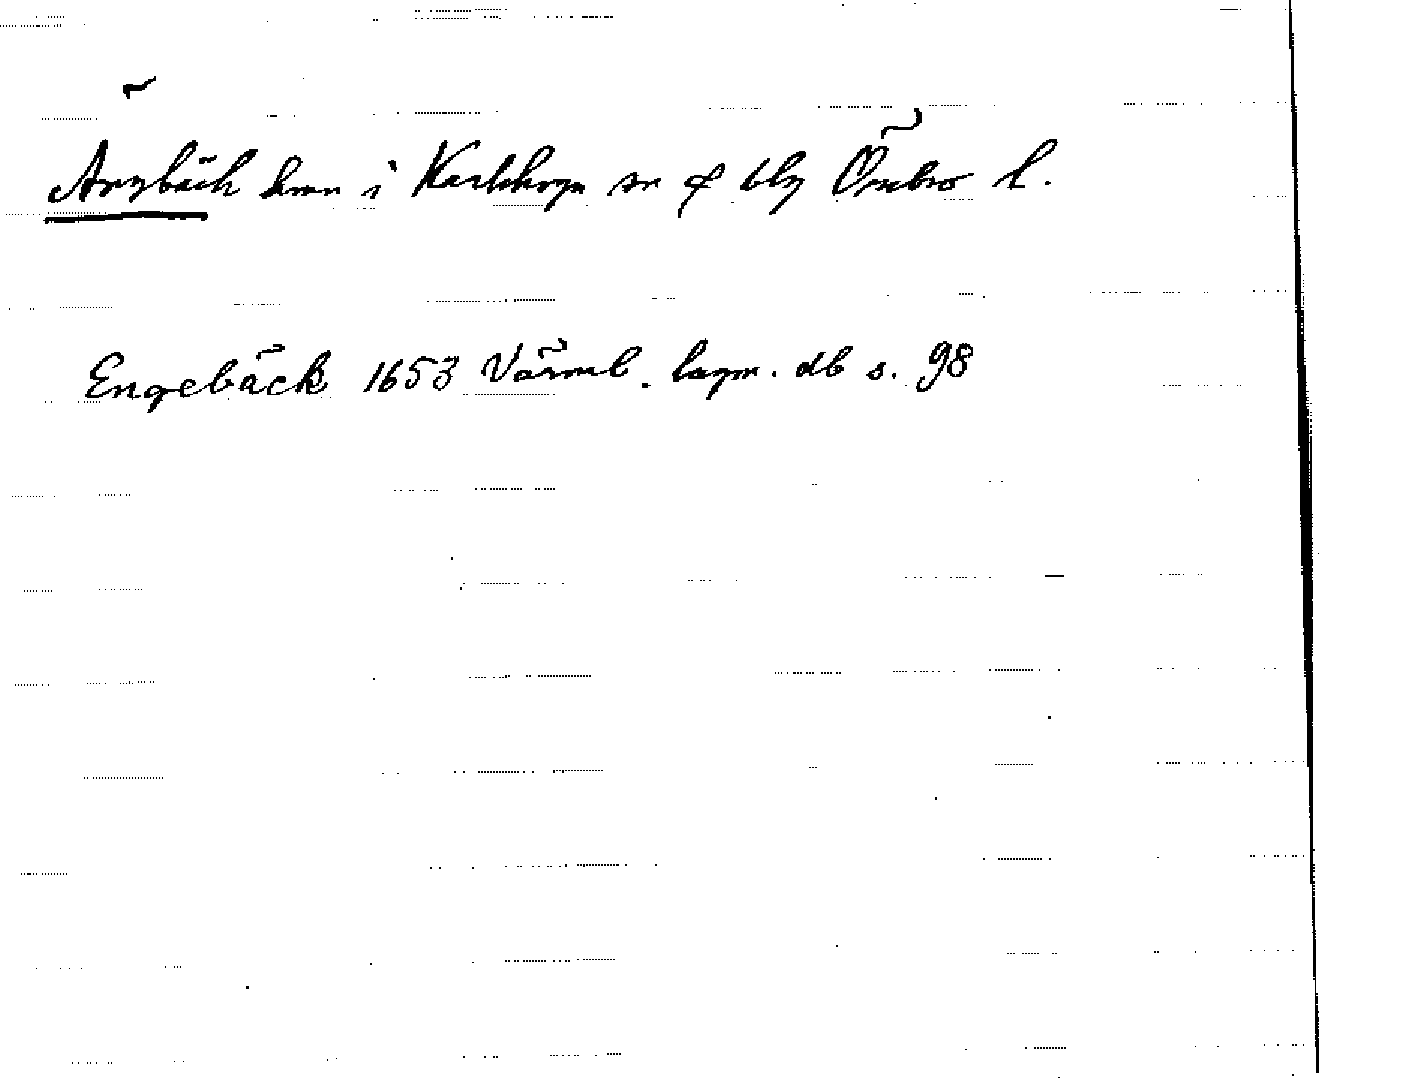 Ängbäck hmn i Karlskoga sn o blg Örebro l.
Engebäck 1653 Värml. lagm. db s. 98